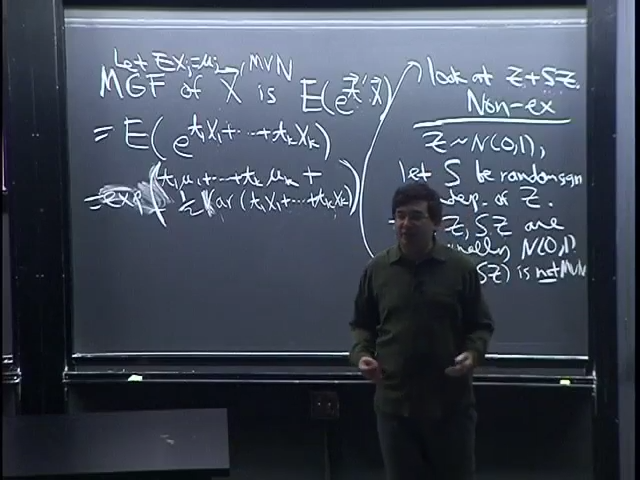 Let EXⱼ=μⱼ, MVN
MGF of X⃗ is E(e^{t⃗'X⃗})
= E(e^{t₁X₁+⋯+tₖXₖ})
= exp(t₁μ₁+⋯+tₖμₖ +
½Var(t₁X₁+⋯+tₖXₖ))
look at Z+SZ.
Non-ex
Z~N(0,1),
let S be random sgn
indep. of Z.
Z, SZ are
N(0,1)
SZ) is not MVN